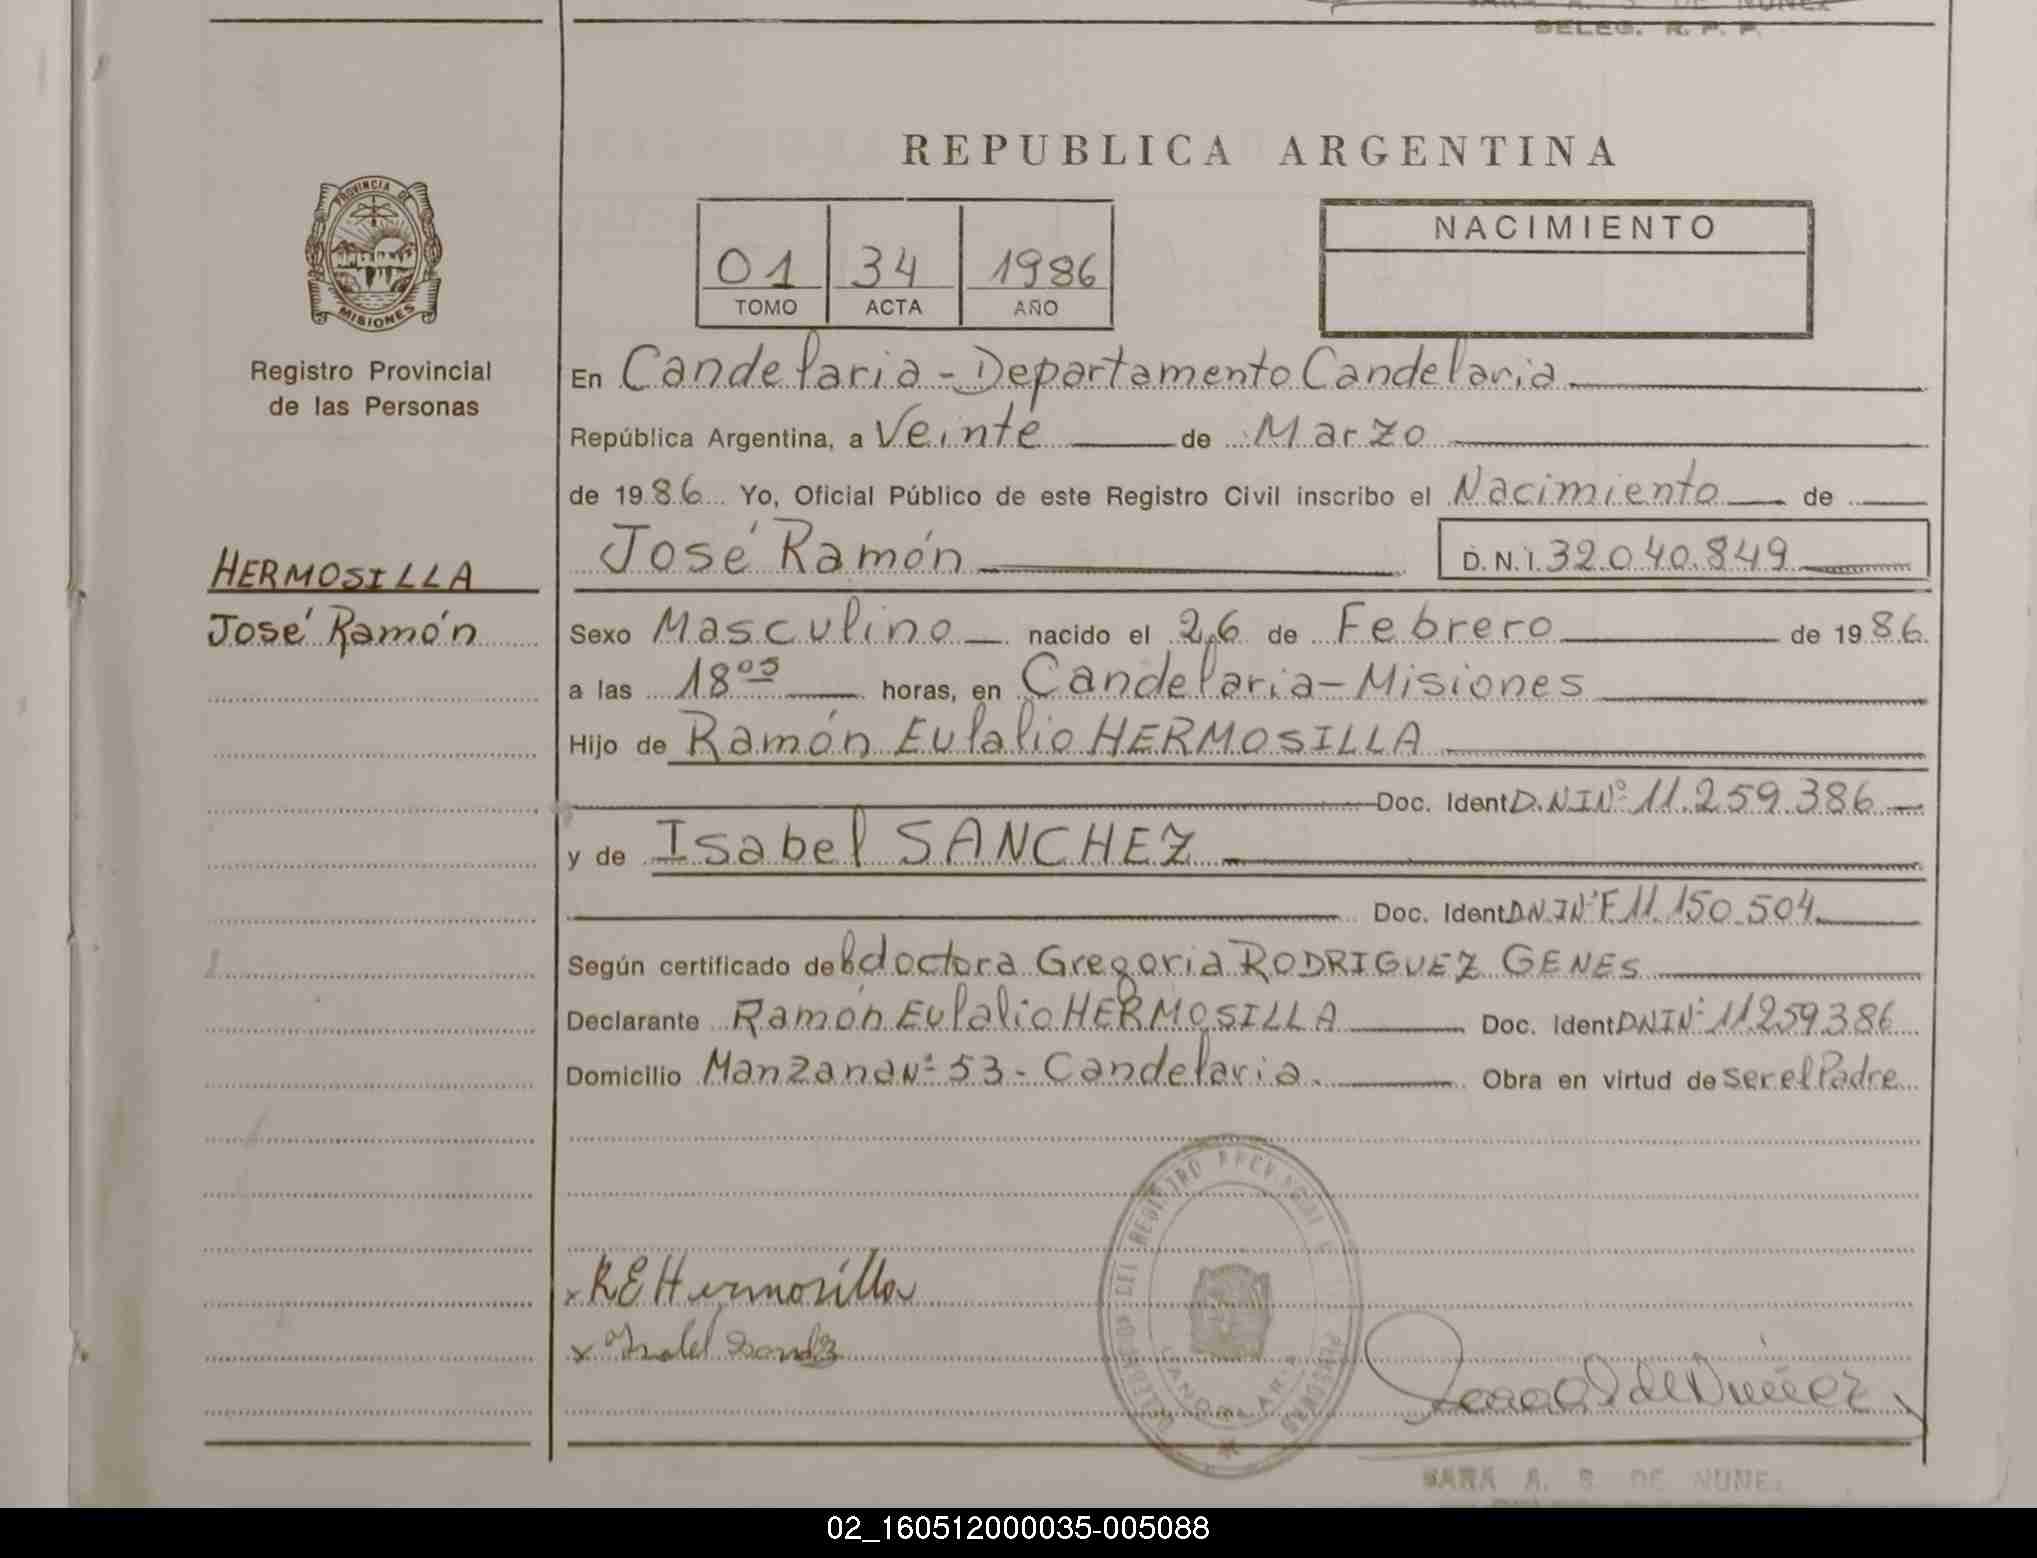 DELEG. R. P. P.
REPUBLICA ARGENTINA
PROVINCIA DE
MISIONES
Registro Provincial
de las Personas
01 34 1986
TOMO ACTA AÑO
NACIMIENTO
En Candelaria - Departamento Candelaria
República Argentina, a Veinte de Marzo
de 1986 Yo, Oficial Público de este Registro Civil inscribo el Nacimiento de
José Ramón D.N.I. 32.040.849
HERMOSILLA
José Ramón
Sexo Masculino nacido el 26 de Febrero de 1986
a las 18 05 horas, en Candelaria - Misiones
Hijo de Ramón Eulalio HERMOSILLA
Doc. Ident D.N.I Nº 11.259.386
y de Isabel SANCHEZ
Doc. Ident D.N.I Nº F 11.150.504
Según certificado de la doctora Gregoria RODRIGUEZ GENES
Declarante Ramón Eulalio HERMOSILLA Doc. Ident DNI Nº 11259386
Domicilio Manzana Nº 53 - Candelaria. Obra en virtud de ser el Padre
x R E Hermosilla
x Isabel
DEL REGISTRO PROVINCIAL
PERSONAS
CANDELARIA
SARA A. S. DE NUÑE
02_160512000035-005088